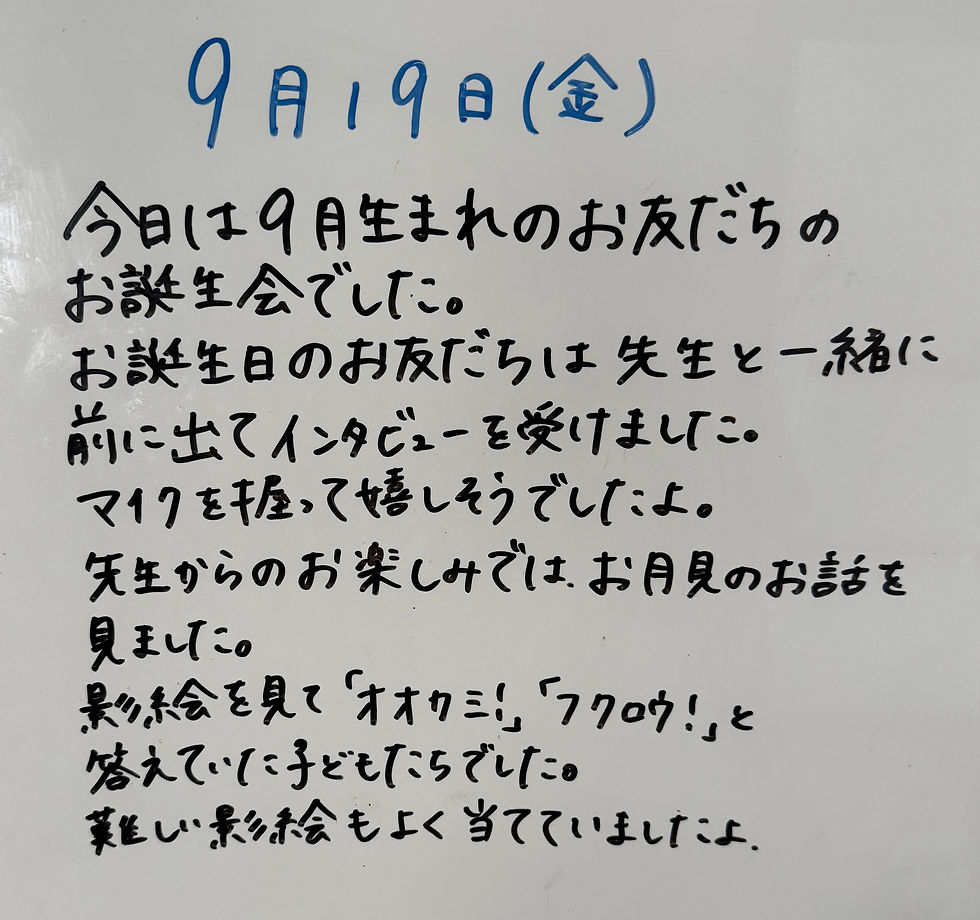 9月19日(金)
今日は9月生まれのお友だちの
お誕生会でした。
お誕生日のお友だちは先生と一緒に
前に出てインタビューを受けました。
マイクを握って嬉しそうでしたよ。
先生からのお楽しみでは、お月見のお話を
見ました。
影絵を見て「オオカミ!」「フクロウ!」と
答えていた子どもたちでした。
難しい影絵もよく当てていましたよ.